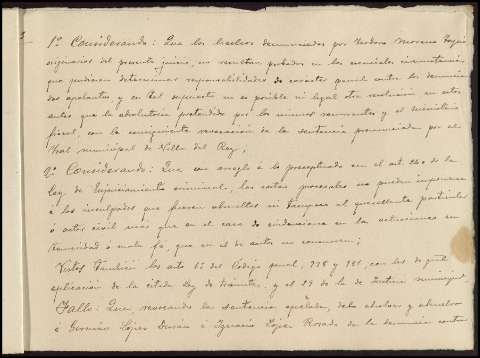 1º Considerando: Que los hechos denunciados por Teodoro Moreno
originarios del presente juicio, no resultan probados en las esenciales circunstancias
que pudieran determinar responsabilidades de carácter penal contra los denuncia
dos apelantes y en tal supuesto no es posible ni legal otra resolución en estos
autos que la absolutoria pretendida por los mismos recurrentes y el ministerio
fiscal, con la consiguiente revocación de la sentencia pronunciada por el
Tral municipal de Villa del Rey;
2º Considerando: Que con arreglo á lo preceptuado en el art 240 de la
Ley de Enjuiciamiento criminal, las costas procesales no pueden imponerse
á los inculpados que fueren absueltos ni tampoco al querellante particular
ó actor civil más que en el caso de evidenciarse en las actuaciones su
temeridad ó mala fé, que en el de autos no concurren;
Vistos también los arts 1º del Código penal, 738 y 981, con los de gral
aplicación de la citada Ley de trámites, y el 29 de la de Justicia municipal
Fallo: Que, revocando la sentencia apelada, debo absolver y absuelvo
á Germán López Durán é Ignacio López Rosado de la denuncia contra